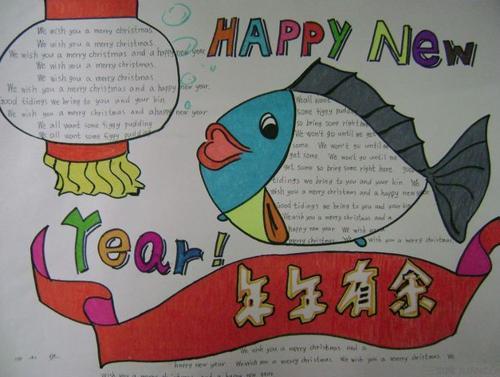 HAPPY New
Year!
年年有余
We wish you a merry christmas
We wish you a merry christmas
We wish you a merry christmas and a happy new year
We wish you a merry christmas
We wish you a merry christmas
We wish you a merry christmas and a happy new year.
good tidings we bring to you and your kin
We wish you a merry christmas and a happy new year
We all want some figgy pudding
We all want some figgy pudding
We all want
some figgy pudd
so bring some right
We won't go until we ge
some We won't go until
get some We won't go until we
get some so bring some right here good
tidings we bring to you and your kin We
wish you a merry christmas and a happy new year
Good tidings we bring to you and your
We wish you a merry christmas and a
happy new year We wish
merry christmas We wish you a merry christmas
We wish you a merry christmas and a
happy new year We wish you a merry christmas We wish you a merry christmas We
wish you a merry christmas and a happy new year